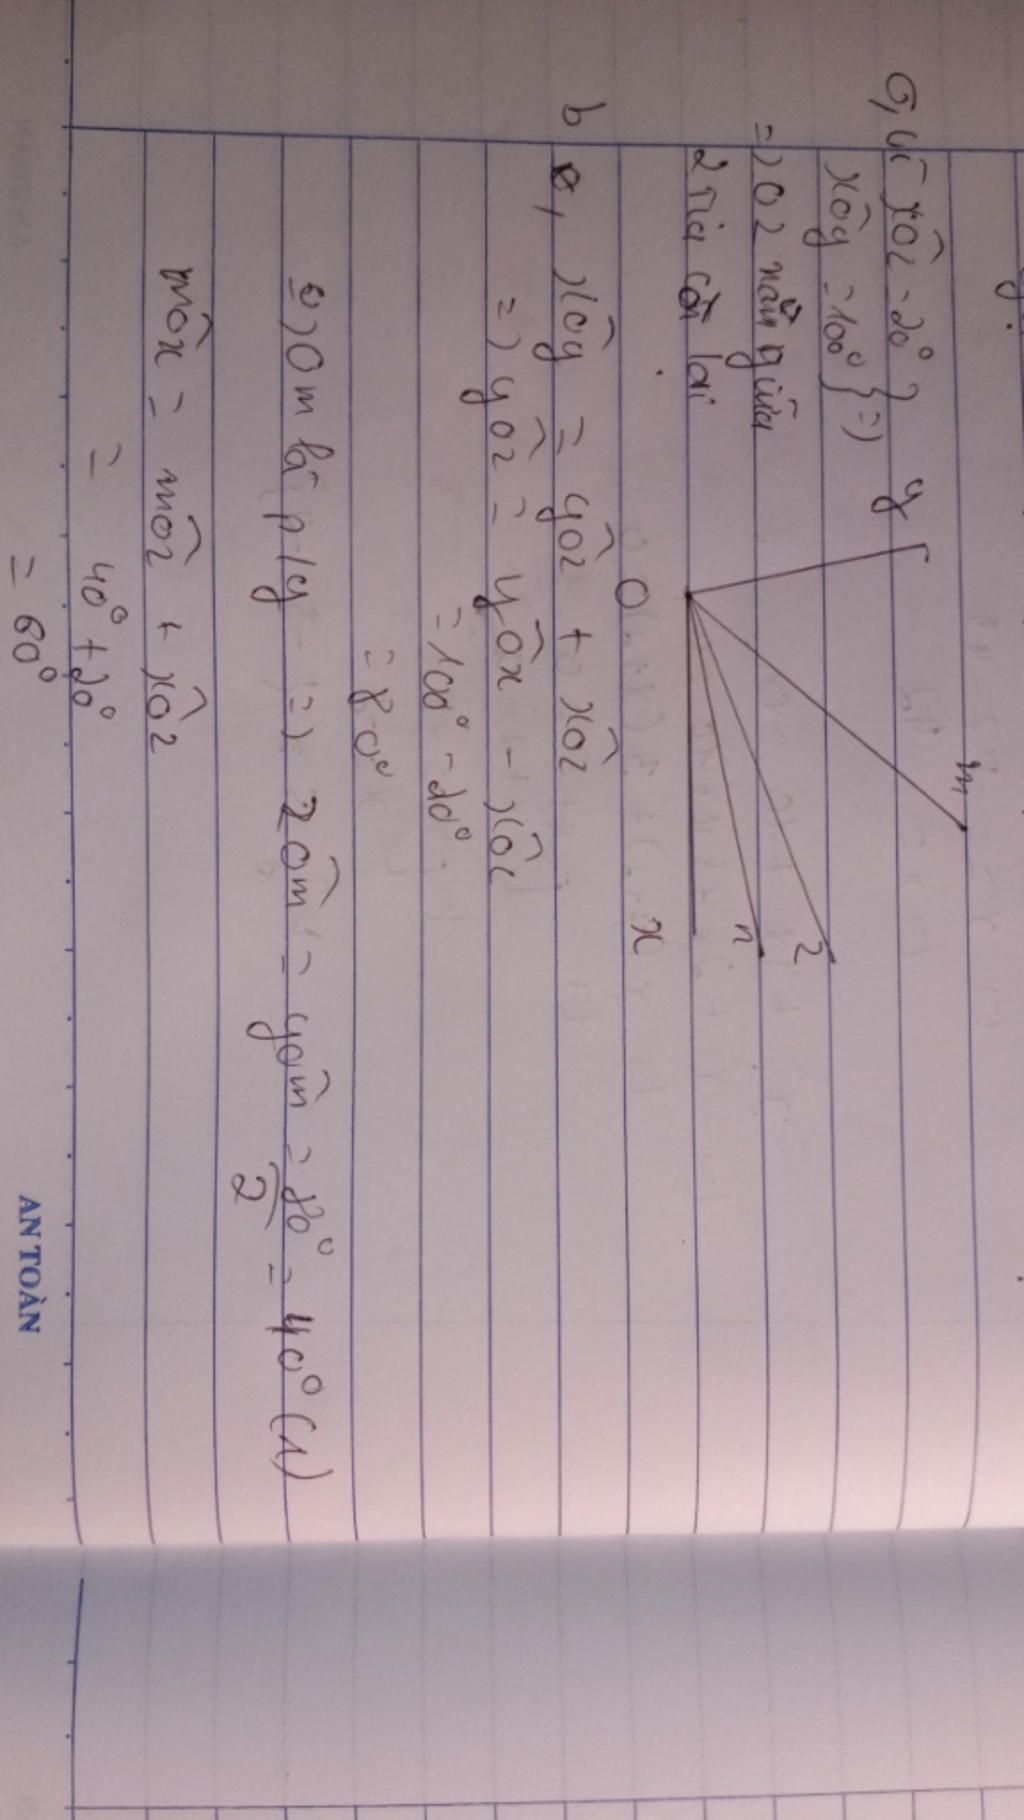 a, Vì xôz = 20°
xôy = 100° } =)
=) Oz nằm giữa
2 tia còn lại
y
m
z
n
O
x
b, xôy = yôz + xôz
=) yôz = yôx - xôz
= 100° - 20°
= 80°
c) Om là p/g =) zôm = yôm = 80°/2 = 40° (1)
môx = môz + xôz
= 40° + 20°
= 60°
AN TOÀN